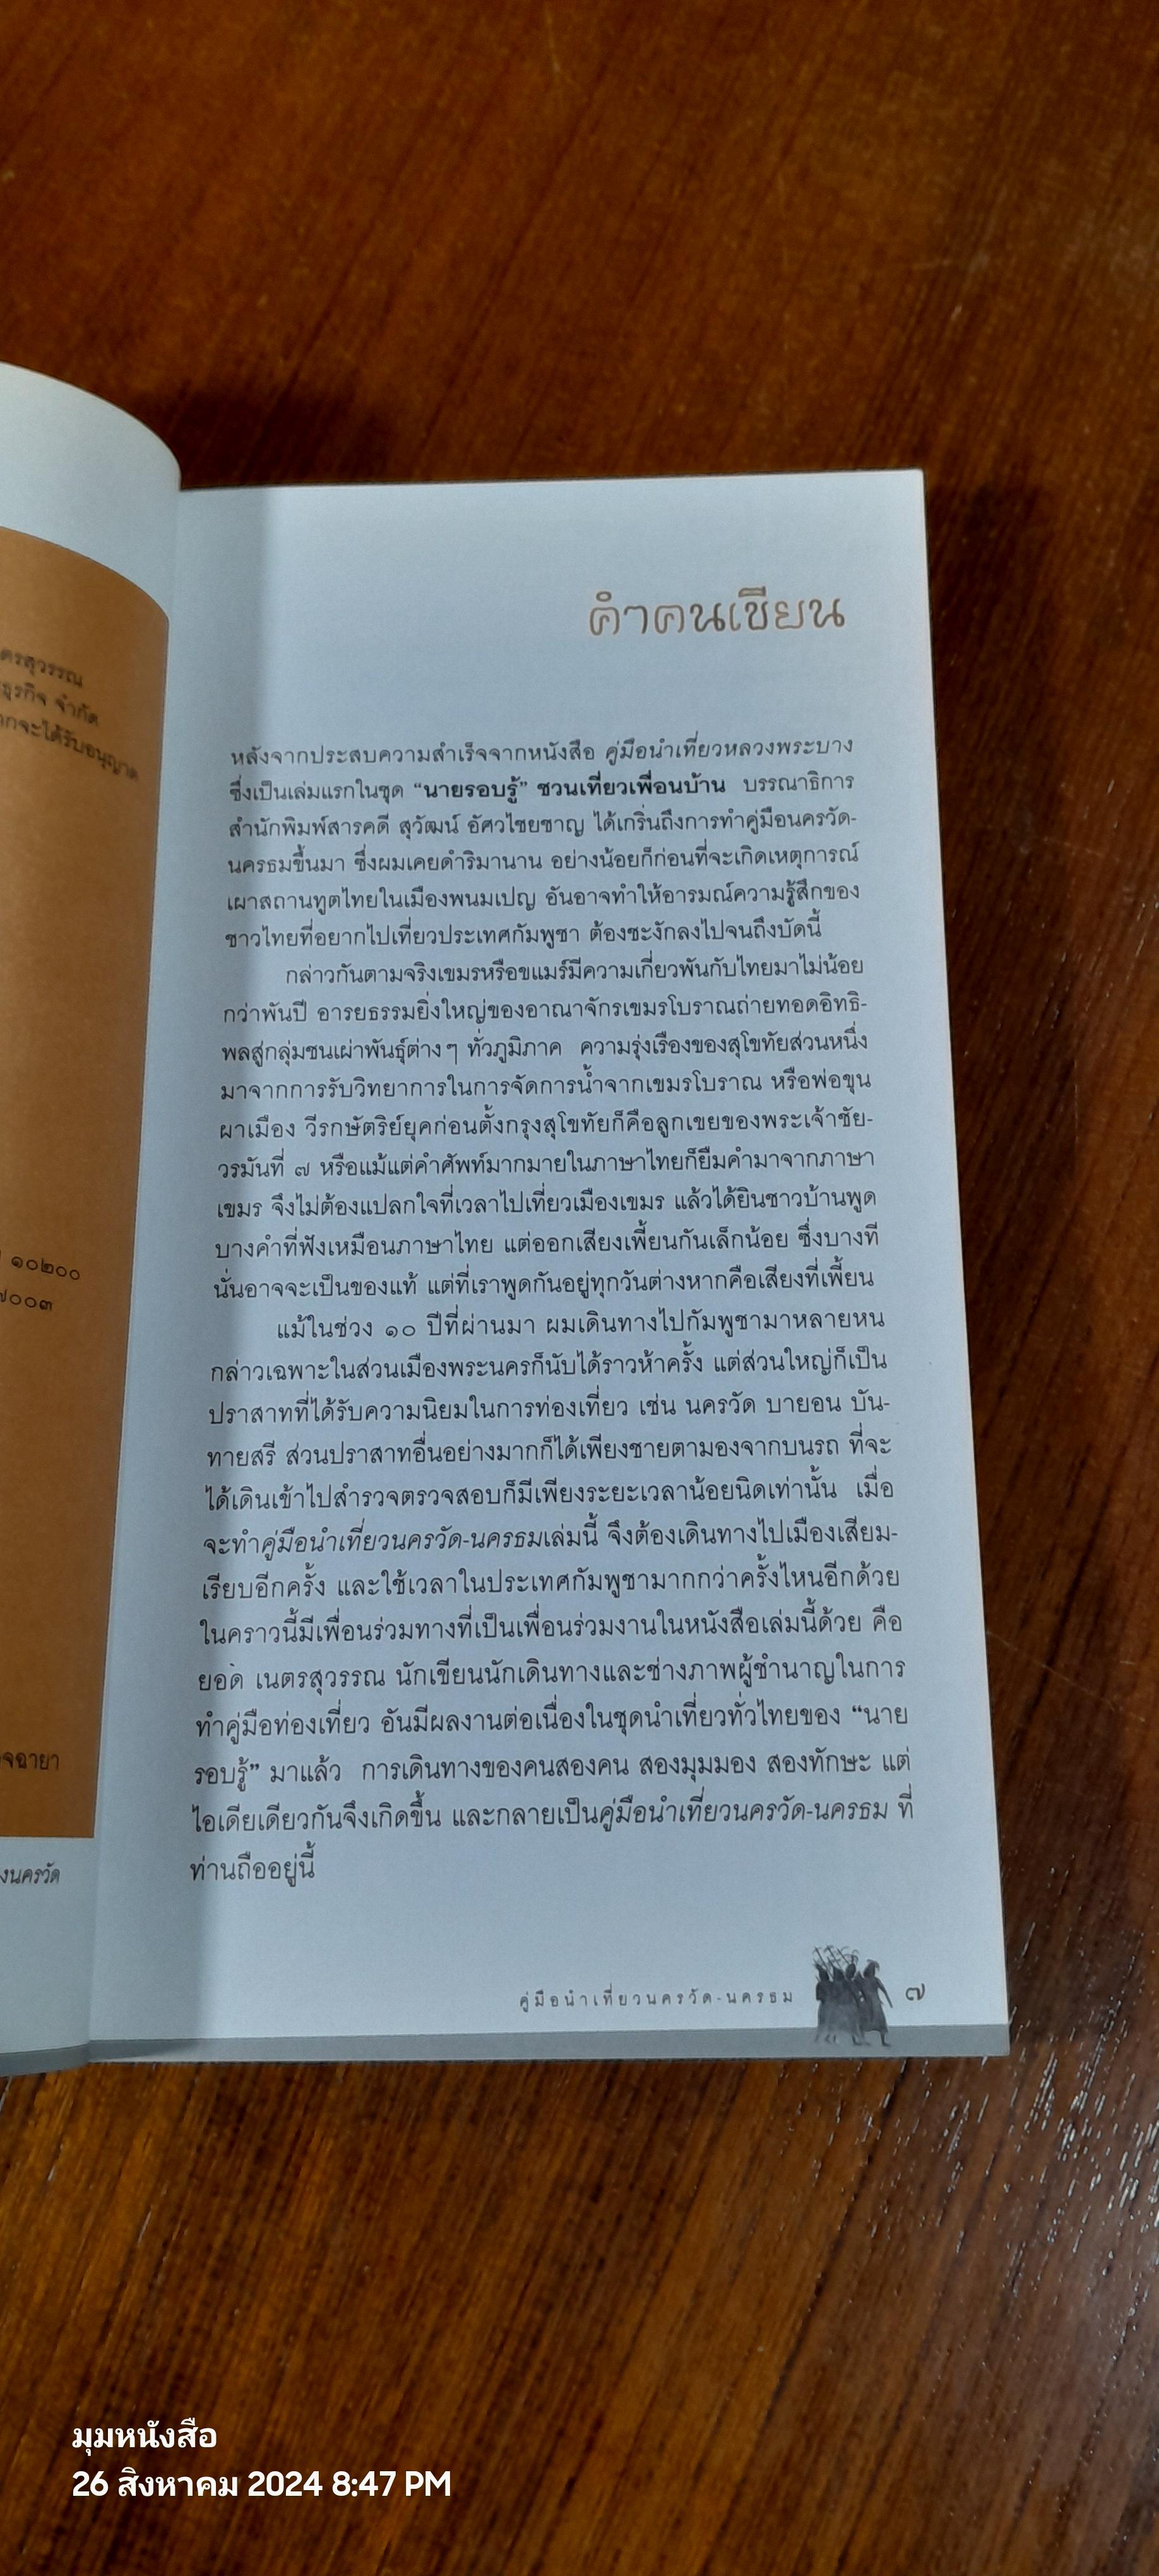 ตรสุวรรณ
ธุรกิจ จำกัด
กจะได้รับอนุญาต
๑๐๒๐๐
๗๐๐๓
จฉายา
งนครวัด
คำคนเขียน
หลังจากประสบความสำเร็จจากหนังสือ คู่มือนำเที่ยวหลวงพระบาง
ซึ่งเป็นเล่มแรกในชุด “นายรอบรู้” ชวนเที่ยวเพื่อนบ้าน บรรณาธิการ
สำนักพิมพ์สารคดี สุวัฒน์ อัศวไชยชาญ ได้เกริ่นถึงการทำคู่มือนครวัด-
นครธมขึ้นมา ซึ่งผมเคยดำริมานาน อย่างน้อยก็ก่อนที่จะเกิดเหตุการณ์
เผาสถานทูตไทยในเมืองพนมเปญ อันอาจทำให้อารมณ์ความรู้สึกของ
ชาวไทยที่อยากไปเที่ยวประเทศกัมพูชา ต้องชะงักลงไปจนถึงบัดนี้
กล่าวกันตามจริงเขมรหรือขแมร์มีความเกี่ยวพันกับไทยมาไม่น้อย
กว่าพันปี อารยธรรมยิ่งใหญ่ของอาณาจักรเขมรโบราณถ่ายทอดอิทธิ-
พลสู่กลุ่มชนเผ่าพันธุ์ต่างๆ ทั่วภูมิภาค ความรุ่งเรืองของสุโขทัยส่วนหนึ่ง
มาจากการรับวิทยาการในการจัดการน้ำจากเขมรโบราณ หรือพ่อขุน
ผาเมือง วีรกษัตริย์ยุคก่อนตั้งกรุงสุโขทัยก็คือลูกเขยของพระเจ้าชัย-
วรมันที่ ๗ หรือแม้แต่คำศัพท์มากมายในภาษาไทยก็ยืมคำมาจากภาษา
เขมร จึงไม่ต้องแปลกใจที่เวลาไปเที่ยวเมืองเขมร แล้วได้ยินชาวบ้านพูด
บางคำที่ฟังเหมือนภาษาไทย แต่ออกเสียงเพี้ยนกันเล็กน้อย ซึ่งบางที
นั่นอาจจะเป็นของแท้ แต่ที่เราพูดกันอยู่ทุกวันต่างหากคือเสียงที่เพี้ยน
แม้ในช่วง ๑๐ ปีที่ผ่านมา ผมเดินทางไปกัมพูชามาหลายหน
กล่าวเฉพาะในส่วนเมืองพระนครก็นับได้ราวห้าครั้ง แต่ส่วนใหญ่ก็เป็น
ปราสาทที่ได้รับความนิยมในการท่องเที่ยว เช่น นครวัด บายอน บัน-
ทายสรี ส่วนปราสาทอื่นอย่างมากก็ได้เพียงชายตามองจากบนรถ ที่จะ
ได้เดินเข้าไปสำรวจตรวจสอบก็มีเพียงระยะเวลาน้อยนิดเท่านั้น เมื่อ
จะทำคู่มือนำเที่ยวนครวัด-นครธมเล่มนี้ จึงต้องเดินทางไปเมืองเสียม-
เรียบอีกครั้ง และใช้เวลาในประเทศกัมพูชามากกว่าครั้งไหนอีกด้วย
ในคราวนี้มีเพื่อนร่วมทางที่เป็นเพื่อนร่วมงานในหนังสือเล่มนี้ด้วย คือ
ยอด เนตรสุวรรณ นักเขียนนักเดินทางและช่างภาพผู้ชำนาญในการ
ทำคู่มือท่องเที่ยว อันมีผลงานต่อเนื่องในชุดนำเที่ยวทั่วไทยของ “นาย
รอบรู้” มาแล้ว การเดินทางของคนสองคน สองมุมมอง สองทักษะ แต่
ไอเดียเดียวกันจึงเกิดขึ้น และกลายเป็นคู่มือนำเที่ยวนครวัด-นครธม ที่
ท่านถืออยู่นี้
คู่มือนำเที่ยวนครวัด-นครธม ๗
มุมหนังสือ
26 สิงหาคม 2024 8:47 PM